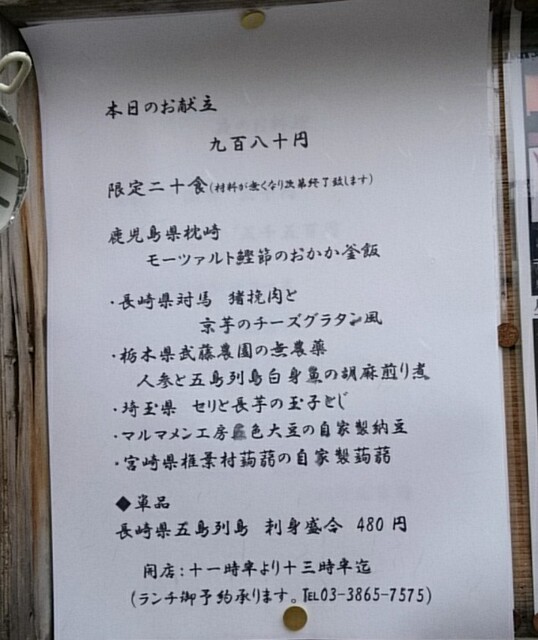 本日のお献立
九百八十円
限定二十食(材料が無くなり次第終了致します)
鹿児島県枕崎
モーツァルト鰹節のおかか釜飯
・長崎県対馬 猪挽肉と
京芋のチーズグラタン風
・栃木県武藤農園の無農薬
人参と五島列島白身魚の胡麻煎り煮
・埼玉県 セリと長芋の玉子とじ
・マルマメン工房 色大豆の自家製納豆
・宮崎県椎葉村蒟蒻の自家製蒟蒻
◆単品
長崎県五島列島 刺身盛合 480円
開店:十一時半より十三時半迄
(ランチ御予約承ります。TEL03-3865-7575)